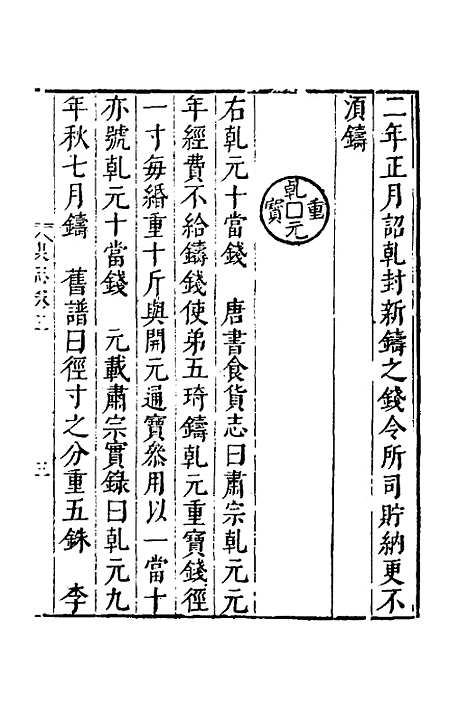 二年正月詔乹封新鑄之錢令所司貯納更不
湏鑄
乹元重寳
右乹元十當錢　唐書食貨志曰肅宗乹元元
年經費不給鑄錢使弟五琦鑄乹元重寶錢徑
一寸每緡重十斤與開元通寶叅用以一當十
亦號乹元十當錢　元載肅宗實錄曰乹元九
年秋七月鑄　舊譜曰徑寸之分重五銖　李
三